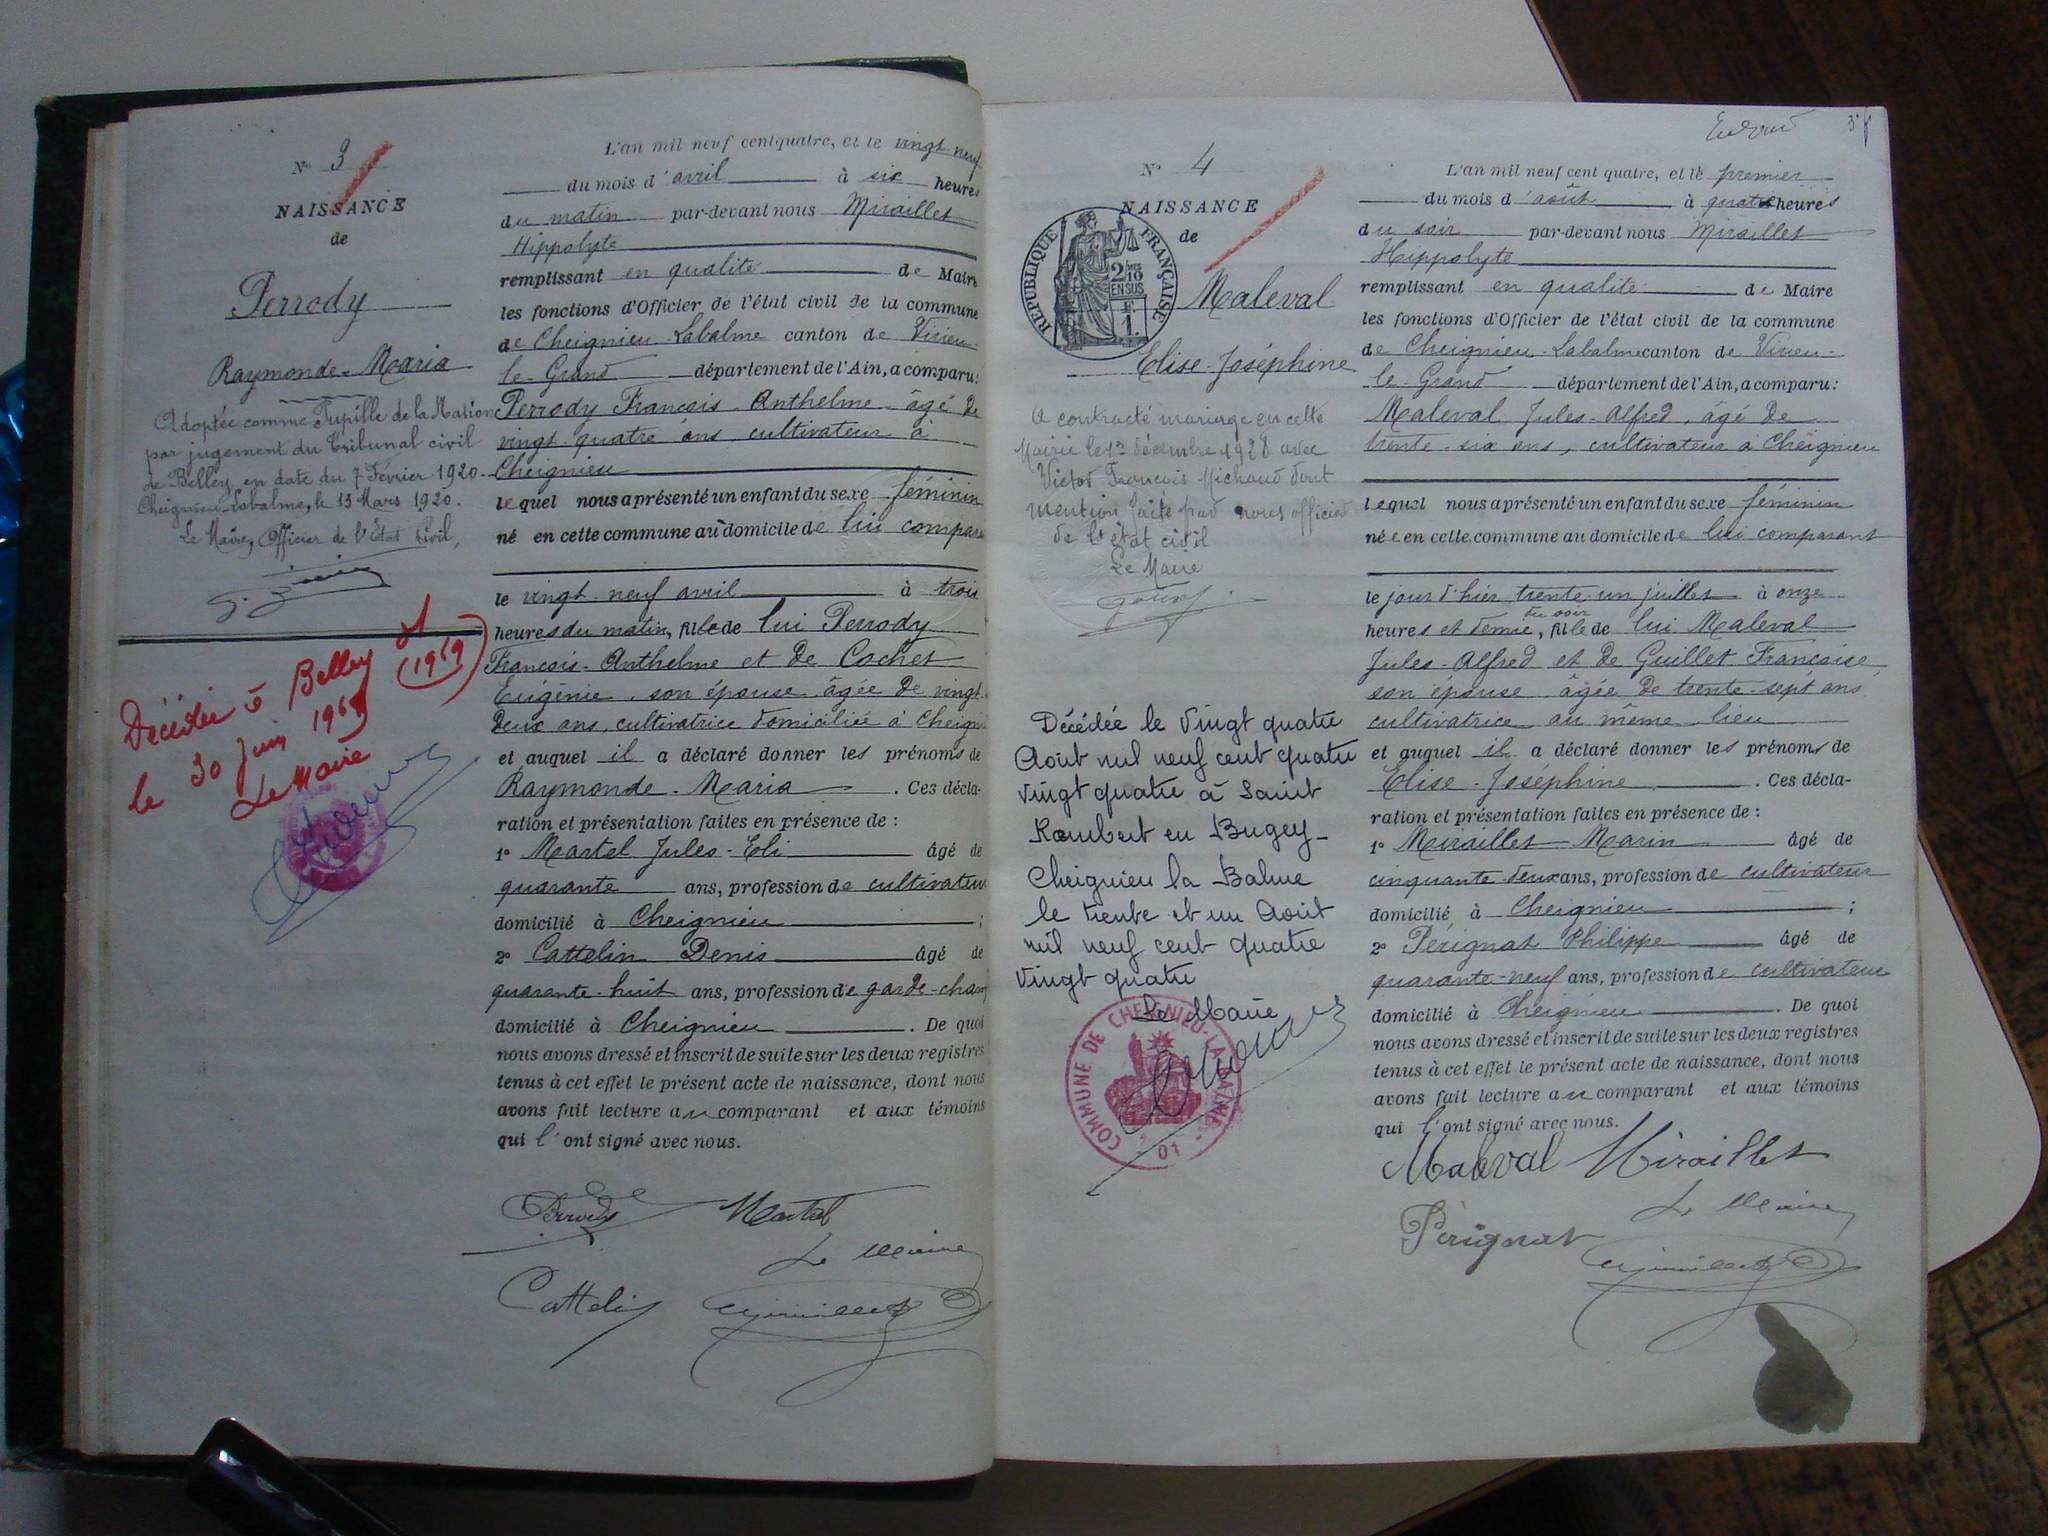 N° 3
NAISSANCE
de
Perrody
Raymonde-Maria
Adoptée comme Pupille de la Nation
par jugement du Tribunal civil
de Belley en date du 7 Février 1920.
Cheignieu-Labalme, le 13 Mars 1920.
Le Maire, Officier de l'Etat Civil,
Décédée à Belley
(1969)
le 30 Juin 1969
Le Maire
L'an mil neuf cent quatre, et le vingt neuf
du mois d'avril à six heures
du matin par-devant nous Miraillet
Hippolyte
remplissant en qualité de Maire
les fonctions d'Officier de l'état civil de la commune
de Cheignieu-Labalme canton de Virieu-
le-Grand département de l'Ain, a comparu:
Perrody François-Anthelme âgé de
vingt-quatre ans, cultivateur à
Cheignieu
lequel nous a présenté un enfant du sexe féminin
né en cette commune au domicile de lui compara
le vingt-neuf avril à trois
heures du matin, fille de lui Perrody
François-Anthelme et de Cochet
Eugénie, son épouse âgée de vingt-
deux ans, cultivatrice domiciliée à Cheigni
et auquel il a déclaré donner les prénoms de
Raymonde-Maria. Ces décla-
ration et présentation faites en présence de :
1° Martel Jules-Eli âgé de
quarante ans, profession de cultivateur
domicilié à Cheignieu ;
2° Cattelin Denis âgé de
quarante-huit ans, profession de garde-cham
domicilié à Cheignieu. De quoi
nous avons dressé et inscrit de suite sur les deux registres
tenus à cet effet le présent acte de naissance, dont nous
avons fait lecture au comparant et aux témoins
qui l'ont signé avec nous.
Perrody Martel
Le Maire
Cattelin Miraillet
3
N° 4
NAISSANCE
de
REPUBLIQUE FRANÇAISE
2/10 EN SUS
F. 1.
Maleval
Elise-Joséphine
a contracté mariage en cette
Mairie le 1er décembre 1928 avec
Victor François Michaud dont
mention faite par nous officier
de l'état civil
Le Maire
Décédée le Vingt quatre
Août mil neuf cent quatre
vingt quatre à Saint
Rambert en Bugey-
Cheignieu la Balme
le trente et un Août
mil neuf cent quatre
vingt quatre
Le Maire
COMMUNE DE CHEIGNIEU-LA-BALME
01
L'an mil neuf cent quatre, et le premier
du mois d'août à quatre heures
du soir par-devant nous Miraillet
Hippolyte
remplissant en qualité de Maire
les fonctions d'Officier de l'état civil de la commune
de Cheignieu-Labalme canton de Virieu-
le-Grand département de l'Ain, a comparu:
Maleval Jules-Alfred, âgé de
trente-six ans, cultivateur à Cheignieu
lequel nous a présenté un enfant du sexe féminin
née en cette commune au domicile de lui comparant
le jour d'hier trente-un juillet à onze
du soir
heures et demie, fille de lui Maleval
Jules-Alfred et de Guillet Françoise,
son épouse âgée de trente-sept ans
cultivatrice au même lieu
et auquel il a déclaré donner les prénoms de
Elise-Joséphine. Ces décla-
ration et présentation faites en présence de :
1° Miraillet Marin âgé de
cinquante-deux ans, profession de cultivateur
domicilié à Cheignieu ;
2° Pérignat Philippe âgé de
quarante-neuf ans, profession de cultivateur
domicilié à Cheignieu. De quoi
nous avons dressé et inscrit de suite sur les deux registres
tenus à cet effet le présent acte de naissance, dont nous
avons fait lecture au comparant et aux témoins
qui l'ont signé avec nous.
Maleval Miraillet
Le Maire
Pérignat Miraillet